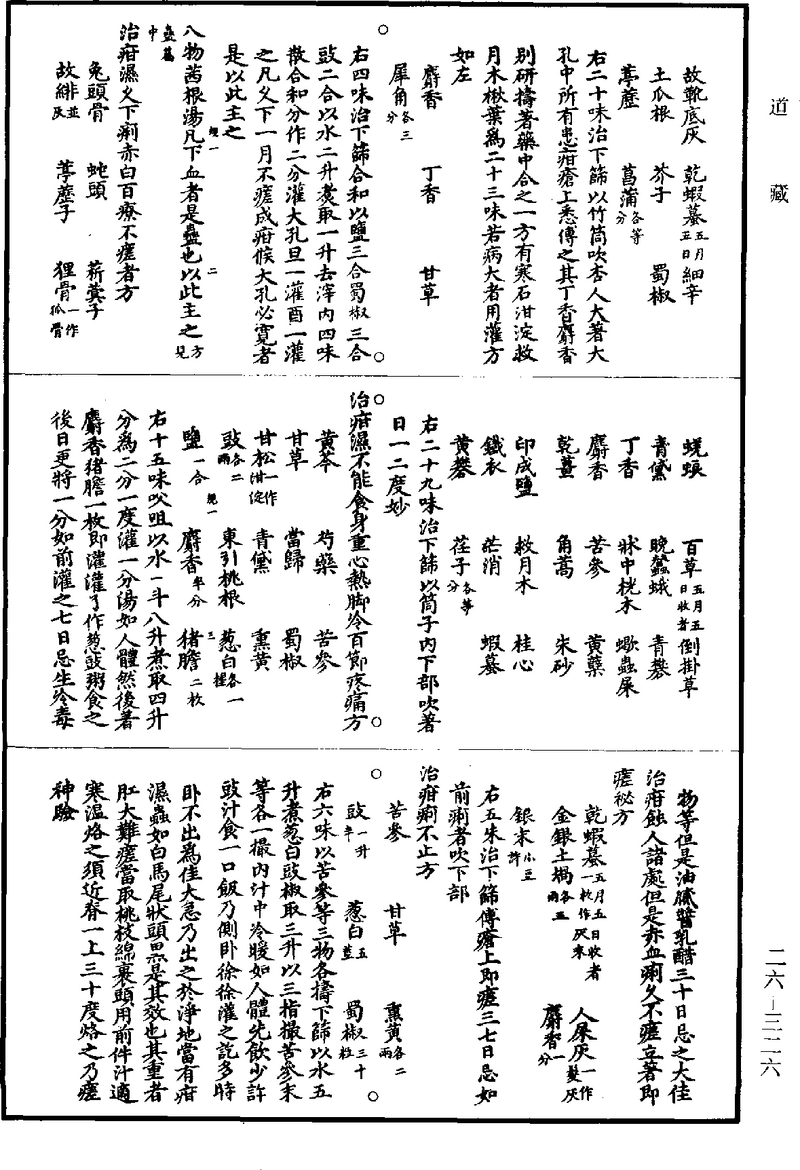 道藏
故靴底灰　乾蝦蟇五月五日　細辛
土瓜根　芥子　蜀椒
葶藶　菖蒲各等分
右二十味治下篩以竹筒吹杏人大著大
孔中所有患疳瘡上悉傅之其丁香麝香
別研擣著藥中合之一方有寒石泔淀救
月木楸葉爲二十三味若病大者用灌方
如左
麝香　丁香　甘草
犀角各三分
右四味治下篩合和以鹽三合蜀椒三合
豉二合以水二升煑取一升去滓內四味
散合和分作二分灌大孔旦一灌酉一灌
之凡久下一月不瘥成疳候大孔必寬者
是以此主之
八物茜根湯凡下血者是蠱也以此主之方見
蠱篇中
治疳濕久下痢赤白百療不瘥者方
兔頭骨　蛇頭　蘄糞子
故緋並灰　葶藶子　狸骨一作狐骨
蜣蜋　百草五月五日收者　倒掛草
青黛　晚蠶蛾　青礬
丁香　牀中桄木　蠍蟲屎
麝香　苦參　黃蘗
乾薑　角蒿　朱砂
印成鹽　救月木　桂心
鐵衣　芒消　蝦蟇
黃礬　荏子各等分
右二十九味治下篩以筒子內下部吹著
日一二度妙
治疳濕不能食身重心熱脚冷百節疼痛方
黃芩　芍藥　苦參
甘草　當歸　蜀椒
甘松一作泔淀　青黛　熏黃
豉各二兩　東引桃根　葱白各一握
鹽一合　麝香半分　猪膽二枚
右十五味㕮咀以水一斗八升煮取四升
分爲二分一度灌一分湯如人體然後著
麝香猪膽一枚即灌灌了作葱豉粥食之
後日更將一分如前灌之七日忌生冷毒
物等但是油膩醬乳酷三十日忌之大佳
治疳蝕人諸處但是赤血痢久不瘥立著即
瘥秘方
乾蝦蟇一枚五月五日收者作灰末　人屎灰一作髮灰
金銀土堝各五兩　麝香一分
銀末小豆許
右五味治下篩傅瘡上即瘥三七日忌如
前痢者吹下部
治疳痢不止方
苦參　甘草　熏黃各二兩
豉一升半　葱白五莖　蜀椒三十粒
右六味以苦參等三物各擣下篩以水五
升煮葱白豉椒取三升以三指撮苦參末
等各一撮內汁中冷暖如人體先飲少許
豉汁食一口飯乃側卧徐徐灌之訖多時
卧不出爲佳大急乃出之於淨地當有疳
濕蟲如白馬尾狀頭黑是其效也其重者
肛大難瘥當取桃枝綿裹頭用前件汁適
寒溫烙之須近脊一上三十度烙之乃瘥
神驗
二六-三二六